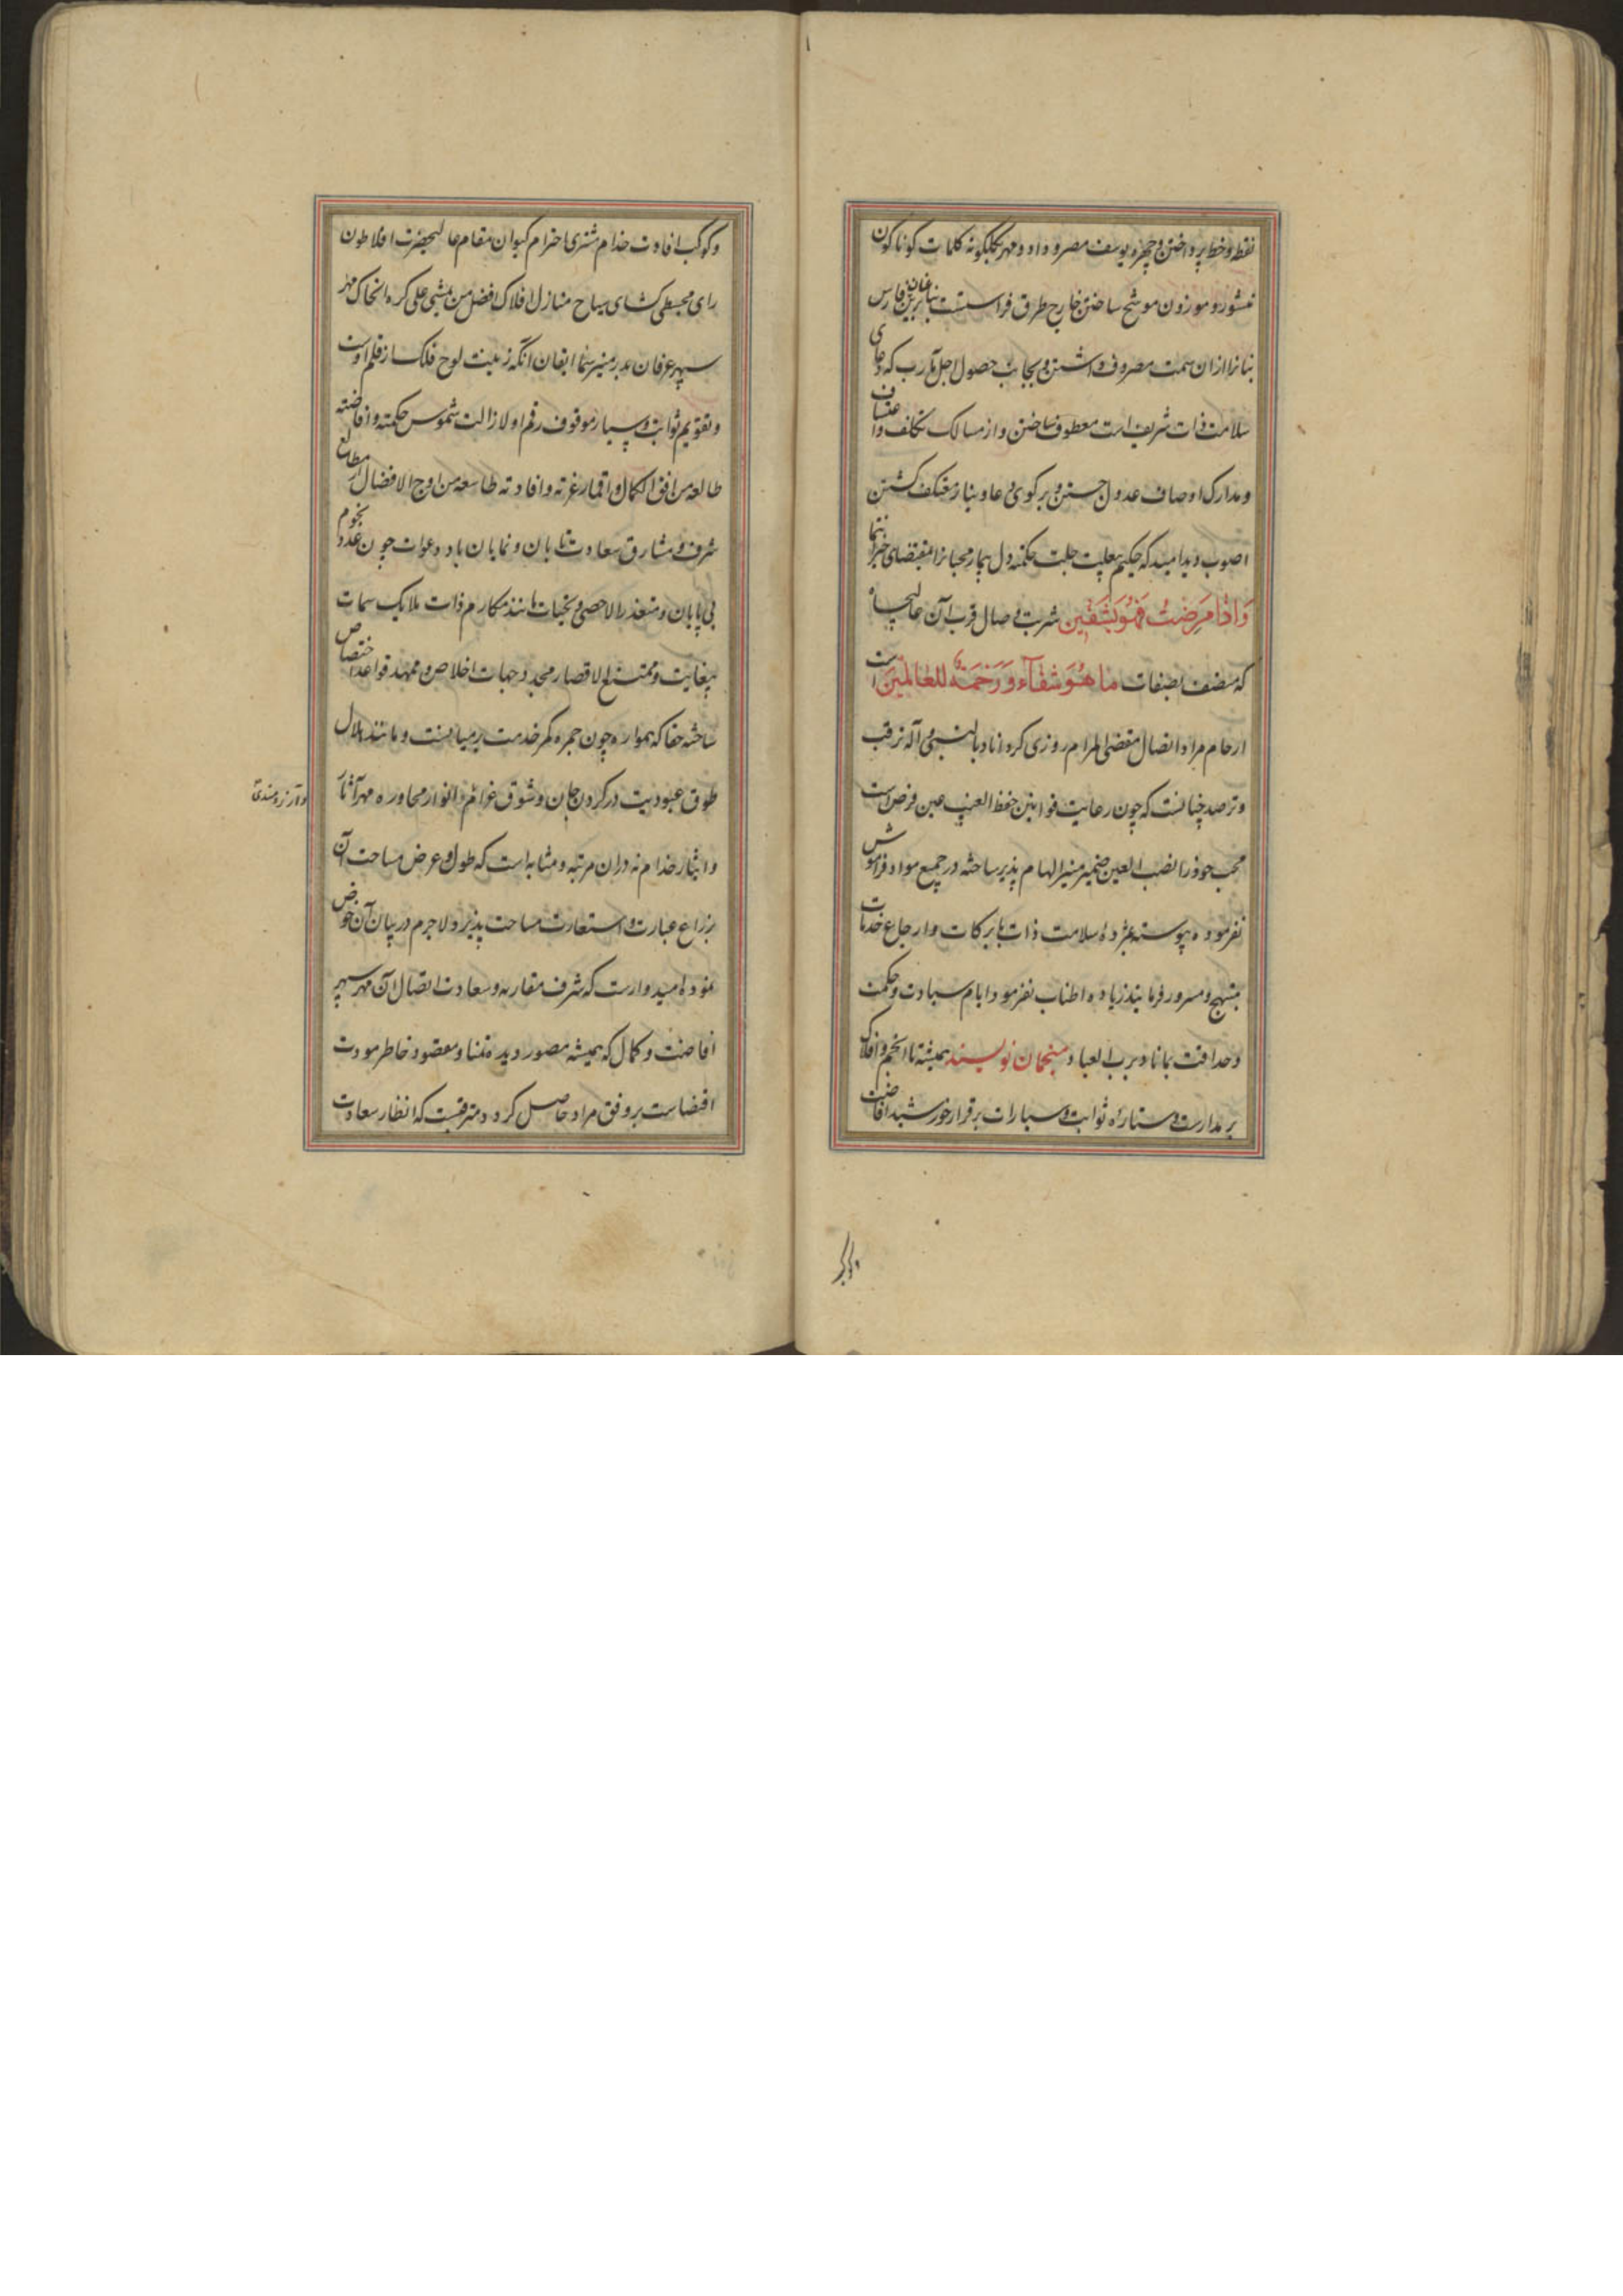 نقطه و خط پرداختن و چهره یوسف مصر وداد و مهر بگلگونه کلمات کوناکون
منشور و موزون موشح ساختن خارج طرق فراستست بنابرین فارس
بنانرا ازان سمت مصروف داشتن و بجانب حصول اجل مآرب که دعای
سلامت ذات شریف است معطوف ساختن و از مسالک تکلف و اعتساف
و مدارک اوصاف عدول جستن و بر کوی دعا و نیاز معتکف کشتن
اصوب دید امید که حکیم بعلیت جلت حکمته دل بیمار محبانرا بمقتضای خبر انتما
وَاِذَا مَرِضْتُ فَهُوَ یَشْفِین شربت وصال قرب آن عالیجاه
که متصف بصفات ما هُوَ شِفَآء وَ رَحْمَةٌ لِلعالَمِین است
ارحام مراد اتصال مقضی المرام روزی کرداناد بالنبی و آله ترقب
و ترصد چنانست که چون رعایت قوانین حفظ الغیب عین فرض است
محب خود را نصب العین ضمیر منیر الهام پذیر ساخته در جمیع مواد فراموش
نفرموده پیوسته بمژده سلامت ذات بابرکات و ارجاع خدمات
مبتهج و مسرور فرمایند زیاده اطناب نفرمود ایام سیادت و حکمت
و حذاقت بماناد برب العباد منجمان نویسند همیشه تا انجم و افلاک
بر مدارست و ستاره ثوابت و سیارات برقرار خورشید افاضت
وکوکب
وکوکب افادت خدام مشتری احترام کیوان مقام عالیحضرت افلاطون
رای مجسطی کشای سیاح منازل افلاک افضل من یمشی علی کره الخاک مهر
سپهر عرفان بدر منیر سما ایقان آنکه زینت لوح فلک از قلم اوست
و تقویم ثوابت و سیار موقوف رقم او لازالت شموس حکمته و افاضته
طالعه من افق الکمال و اقمار غرته و افادته طالعه من اوج الافضال از مطالع
شرف و مشارق سعادت تابان و نمایان باد دعوات چون عدد نجوم
بی پایان و متعذر الاحصی و تحیات مانند مکارم ذات ملایک سمات
بیغایت و ممتنع الاقصار محدد جهات اخلاص و ممهد قواعد اختصاص
ساخته حقا که همواره چون جمره کمر خدمت بر میانست و مانند هلال
طوق عبودیت در کردن جان و شوق غرایم و انوار محاوره مهر آثار
و آرزومندی
و ایثار خدام نه دران مرتبه و مثابه است که طول و عرض مساحت آن
بذراع عبارت و استعارت مساحت پذیرد لاجرم در بیان آن خوض
ننموده امیدوارست که شرف مقاربه و سعادت اتصال آن مهر سپهر
افاضت و کمال که همیشه مصور دیده تمنا و مقصود خاطر مودت
اقتضاست بر وفق مراد حاصل کردد مترقبست که انظار سعادت